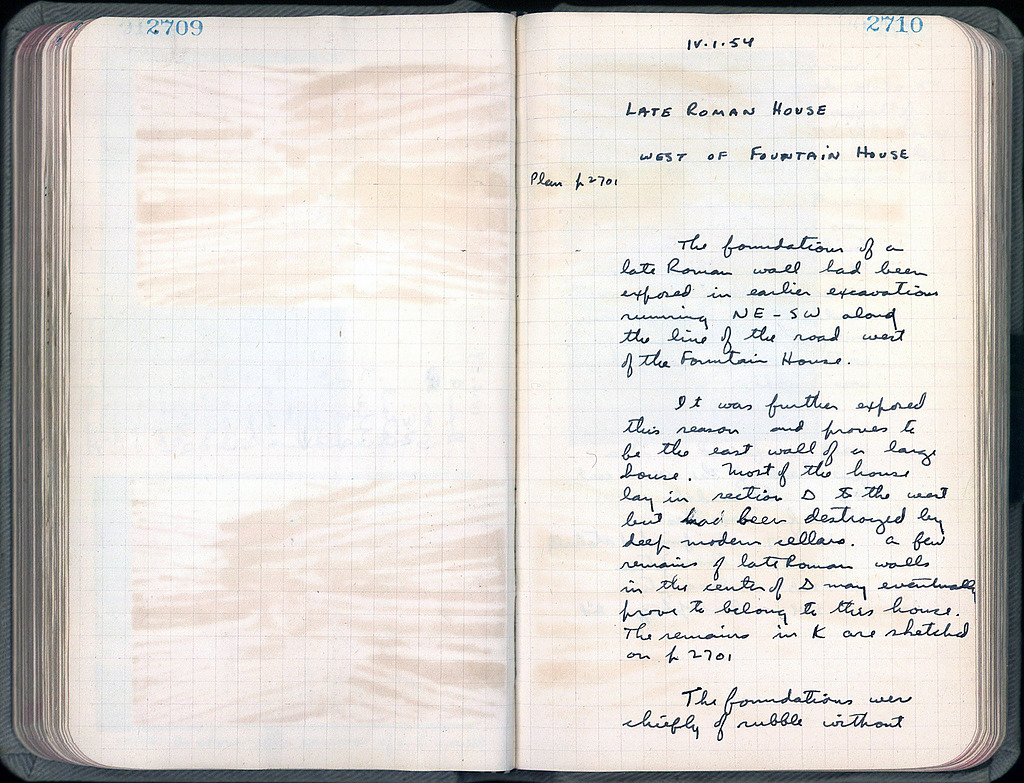 2709
2710
IV.1.54
LATE ROMAN HOUSE
WEST OF FOUNTAIN HOUSE
Plan p 2701
The foundations of a
late Roman wall had been
exposed in earlier excavations
running NE-SW along
the line of the road west
of the Fountain House.
It was further exposed
this season and proves to
be the east wall of a large
house. Most of the house
lay in section D to the west
but had been destroyed by
deep modern cellars. A few
remains of late Roman walls
in the center of D may eventually
prove to belong to this house.
The remains in K are sketched
on p 2701
The foundations were
chiefly of rubble without